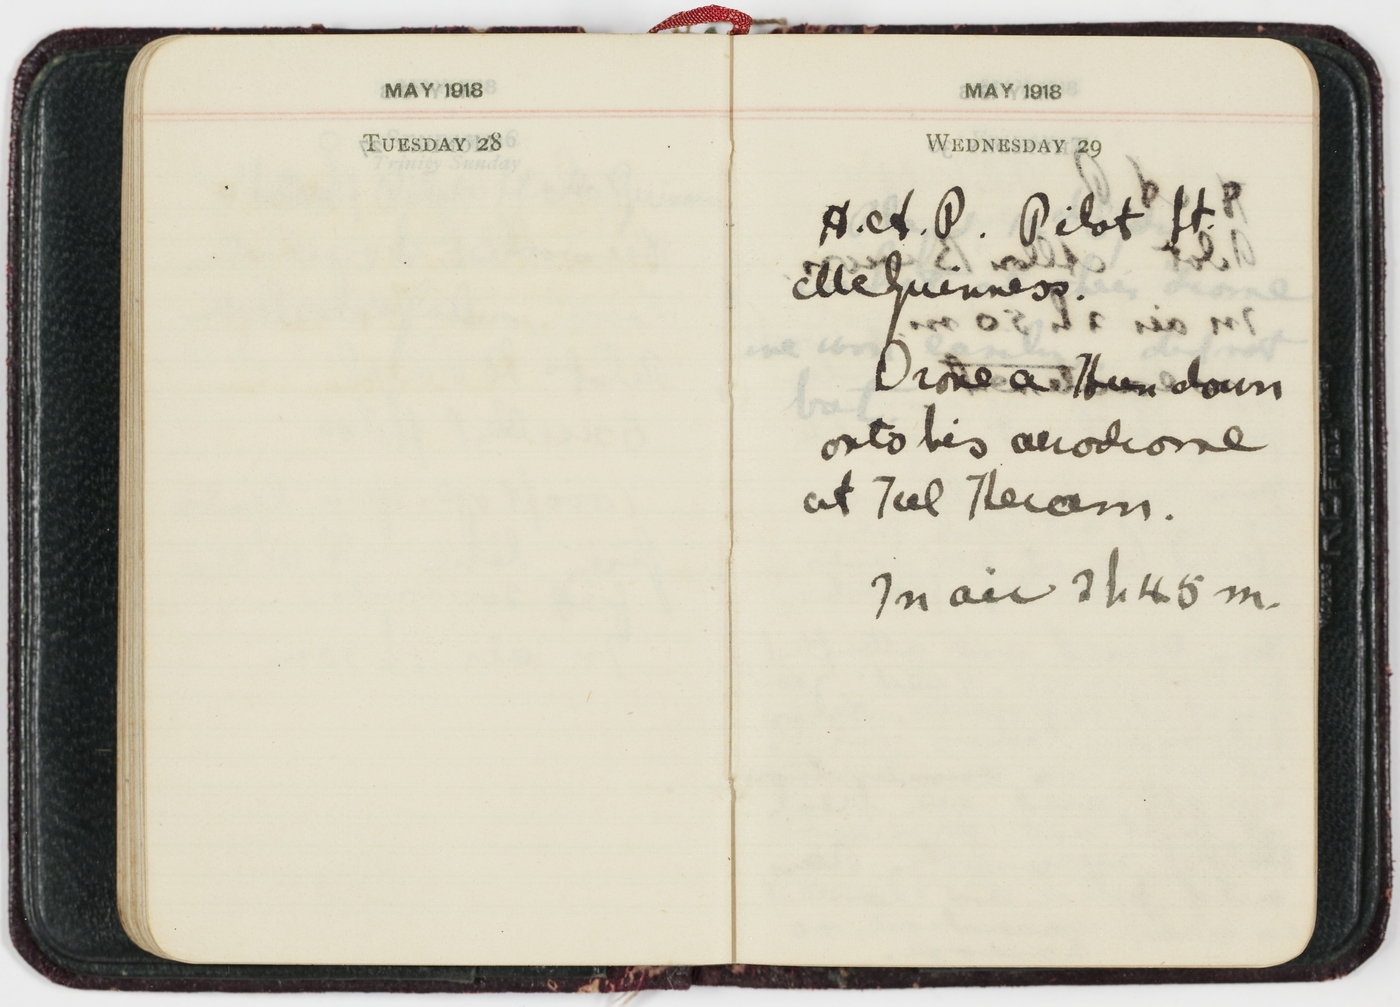 MAY 1918
TUESDAY 28
MAY 1918
WEDNESDAY 29
H.A.P. Pilot Lt.
McGuinness.
Drove a Hun down
onto his aerodrome
at Tul Keram.
In air 2h 45 m.